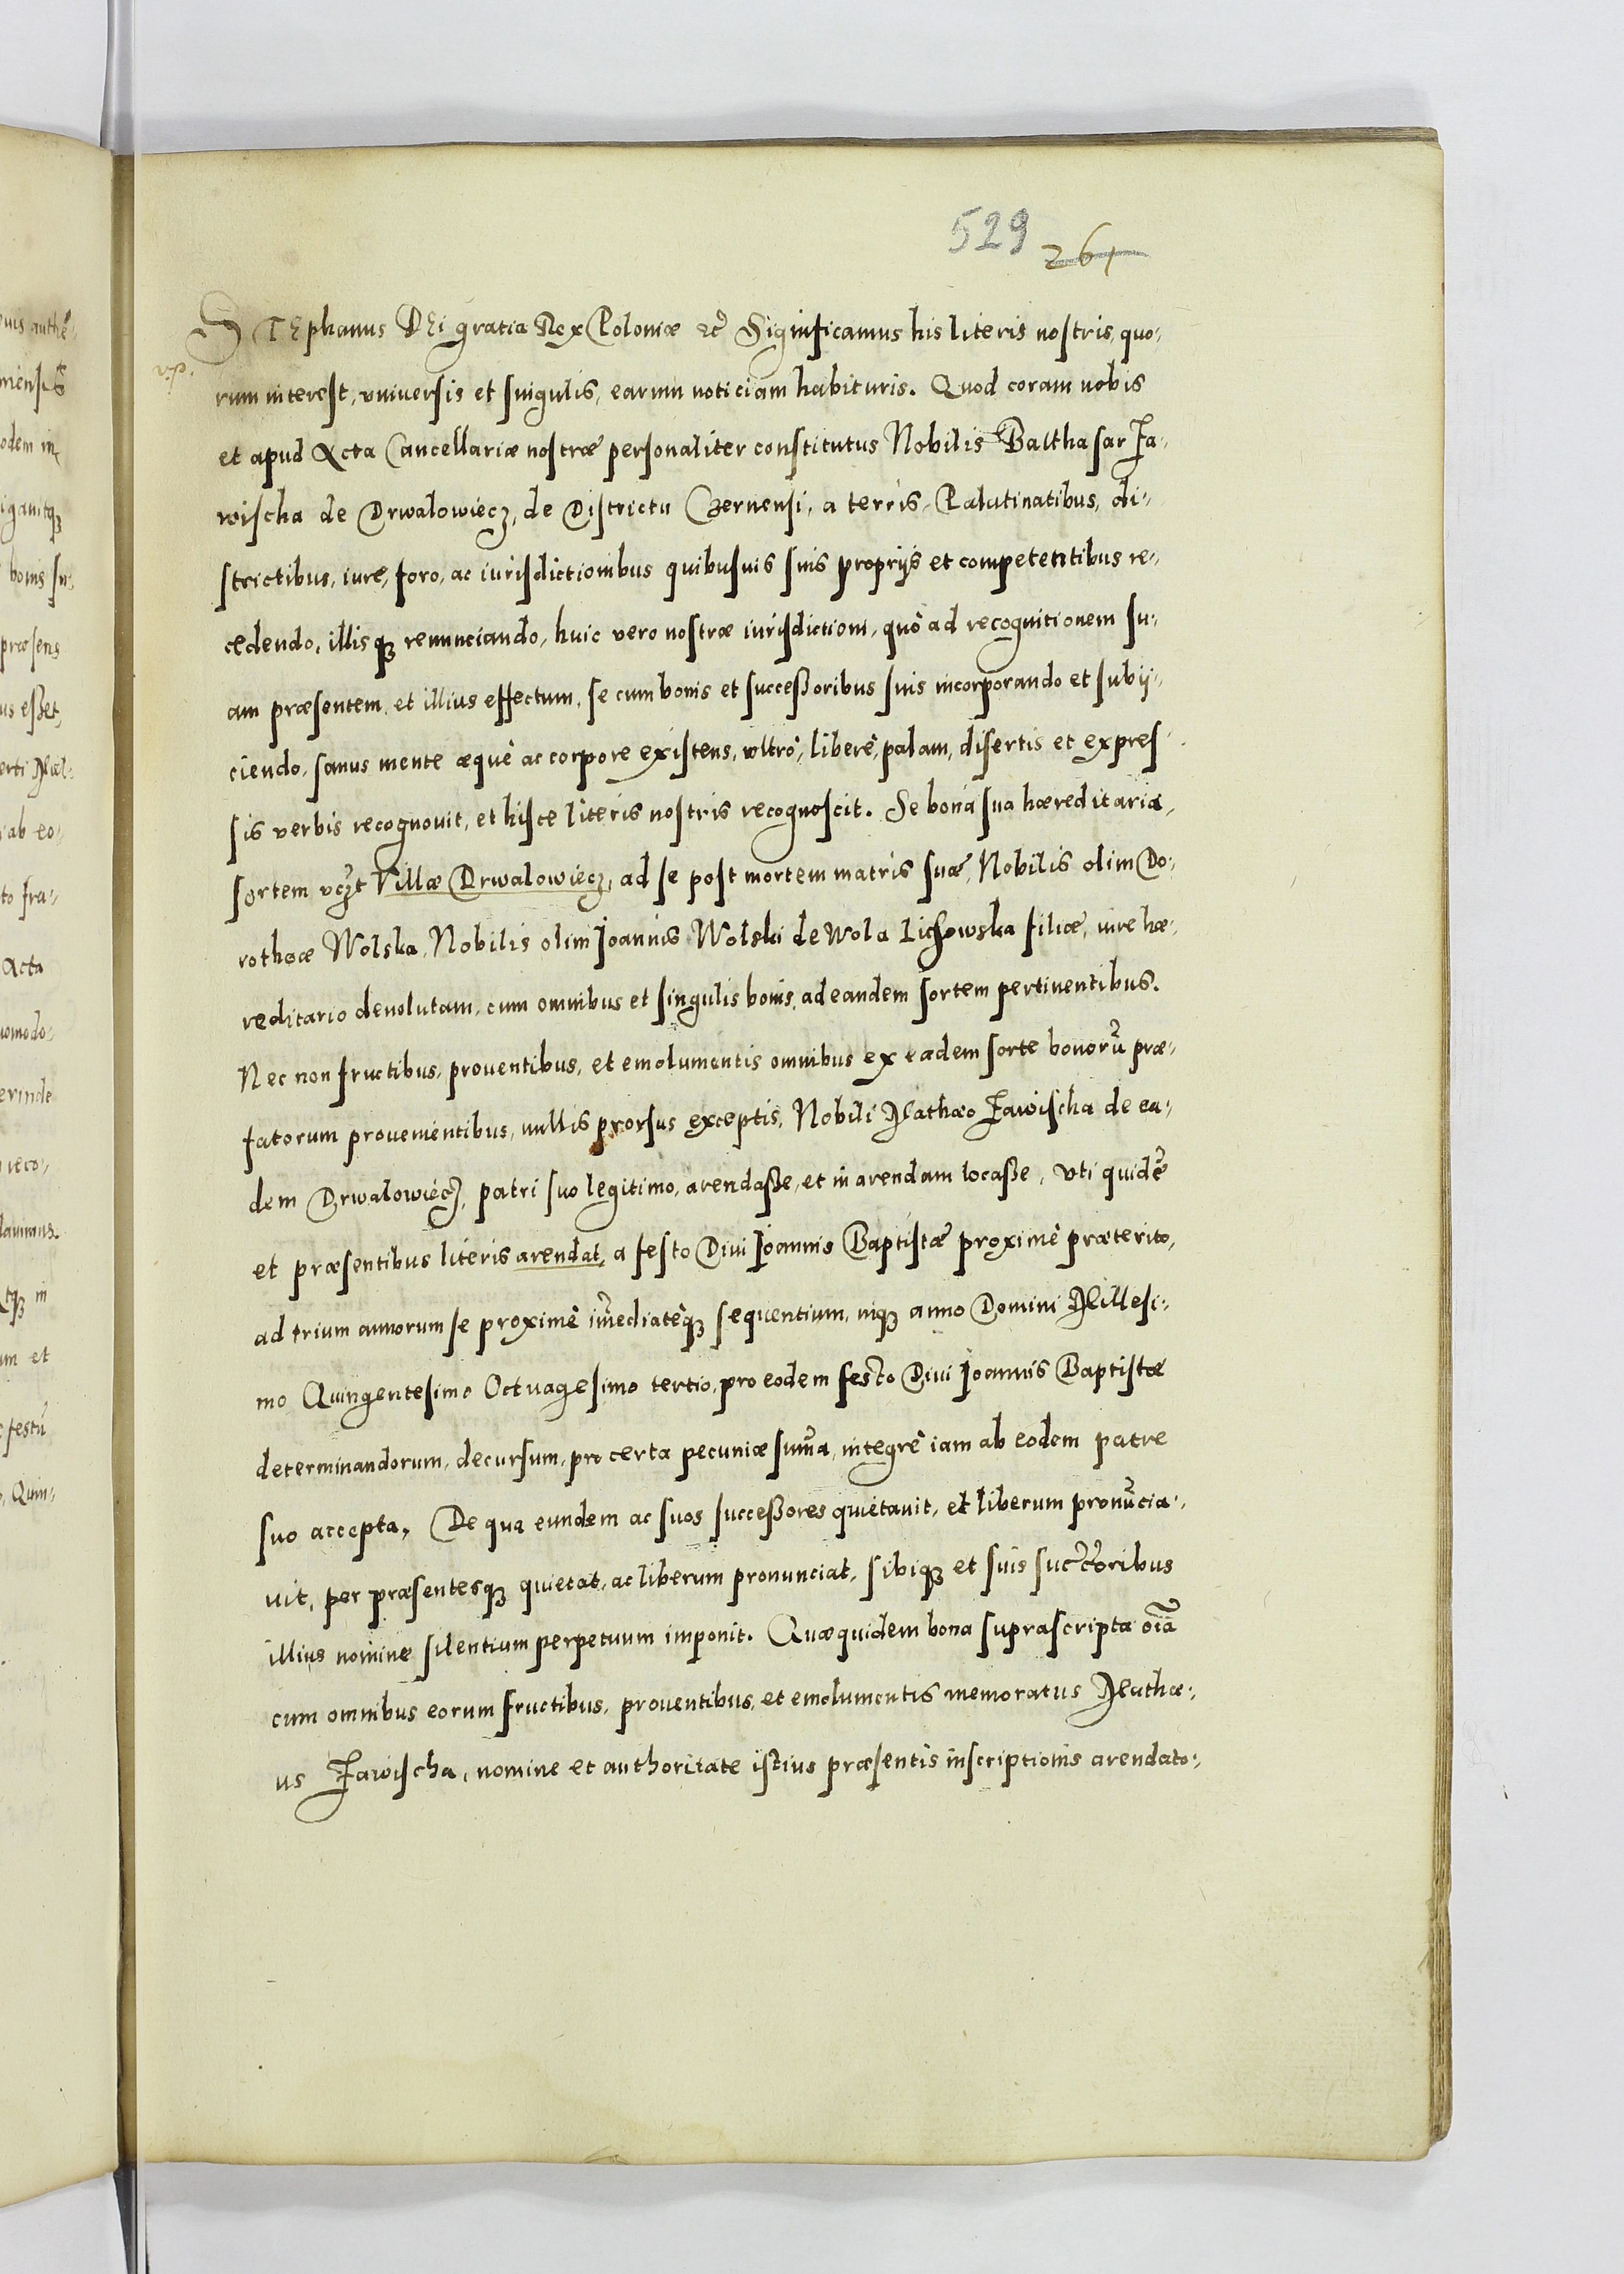 529 261
STEphanus DEi gratia Rex Poloniæ etc̃ Significamus his literis nostris, quo-
v.p.
rum interest, vniuersis et singulis, earum noticiam habituris. Quod coram nobis
et apud Acta Cancellariæ nostræ personaliter constitutus Nobilis Balthasar Za-
wischa de Drwalowiecz, de Districtu Czernensi, a terris, Palatinatibus, di-
strictibus, iure, foro, ac iurisdictionibus quibusuis suis proprijs et competentibus re-
cedendo, illisq3 renunciando, huic vero nostræ iurisdictioni, quò ad recognitionem su-
am præsentem et illius effectum, se cum bonis et succeßoribus suis incorporando et subij-
ciendo, sanus mente æquè ac corpore existens, vltrò, liberè, palam, disertis et expres-
sis verbis recognouit, et hisce literis nostris recognoscit. Se bona sua hæreditaria,
sortem vczt Villæ Drwalowiecz, ad se post mortem matris suæ, Nobilis olim Do-
rotheæ Wolska, Nobilis olim Joannis Wolski de Wola Lichowska filiæ, iure hæ-
reditario deuolutam, cum omnibus et singulis bonis, ad eandem sortem pertinentibus.
Nec non fructibus, prouentibus, et emolumentis omnibus ex eadem sorte bonorũ præ-
fatorum prouenientibus, nullis prorsus exceptis, Nobili Mathæo Zawischa de ea-
dem Drwalowiecz, patri suo legitimo, arendaße, et in arendam locaße, vti quidẽ
et præsentibus literis arendat, a festo Diui Joannis Baptistæ proximè præterito,
ad trium annorum se proximè im̃ediatèq3 sequentium, inq3 anno Domini Millesi-
mo Quingentesimo Octuagesimo tertio, pro eodem festo Diui Joannis Baptistæ
determinandorum, decursum, pro certa pecuniæ sum̃a, integrè iam ab eodem patre
suo accepta, De qua eundem ac suos succeßores quietauit, et liberum pronũcia-
uit, per præsentesq3 quietat, ac liberum pronunciat, sibiq3 et suis succ̃toribus
illius nomine silentium perpetuum imponit. Quæquidem bona suprascripta oĩa
cum omnibus eorum fructibus, prouentibus, et emolumentis memoratus Mathæ-
us Zawischa, nomine et authoritate istius præsentis inscriptionis arendato-